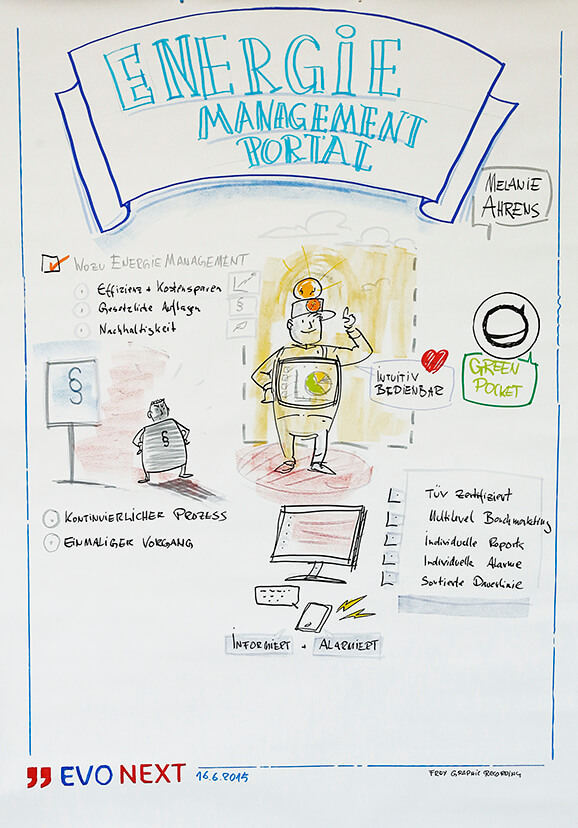 ENERGIE
MANAGEMENT
PORTAL
MELANIE
AHRENS
WOZU ENERGIEMANAGEMENT
Effizienz + Kostensparen
Gesetzliche Auflagen
§
Nachhaltigkeit
§
§
INTUITIV
BEDIENBAR
GREEN
POCKET
KONTINUIERLICHER PROZESS
EINMALIGER VORGANG
TÜV Zertifiziert
Multilevel Benchmarketing
Individuelle Reports
Individuelle Alarme
Sortierte Dauerlinie
INFORMIERT + ALARMIERT
EVO NEXT 16.6.2015
FROY GRAPHIC RECORDING